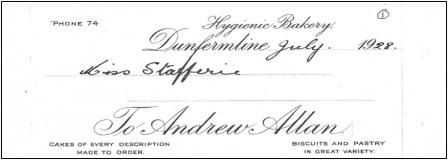 'PHONE 74
Hygienic Bakery,
①
Dunfermline July. 1928.
Miss Stafferie
To Andrew Allan
CAKES OF EVERY DESCRIPTION
MADE TO ORDER.
BISCUITS AND PASTRY
IN GREAT VARIETY.